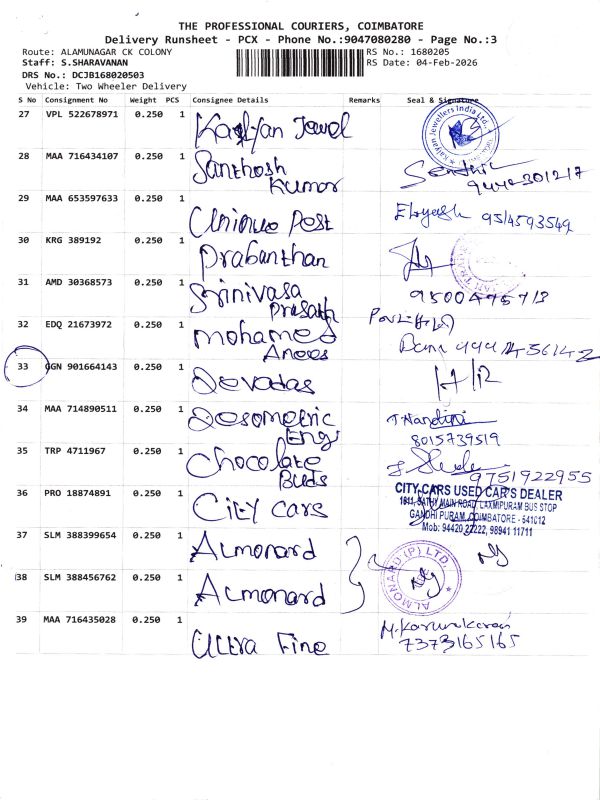 THE PROFESSIONAL COURIERS, COIMBATORE
Delivery Runsheet - PCX - Phone No.:9047080280 - Page No.:3
Route: ALAMUNAGAR CK COLONY RS No.: 1680205
Staff: S.SHARAVANAN RS Date: 04-Feb-2026
DRS No.: DCJB168020503
Vehicle: Two Wheeler Delivery
S No Consignment No Weight PCS Consignee Details Remarks Seal & Signature
27 VPL 522678971 0.250 1 Kalyan Jewel
Kalyan Jewellers India Ltd.
28 MAA 716434107 0.250 1 Santhosh Kumar
29 MAA 653597633 0.250 1 Post 9514593549
30 KRG 389192 0.250 1 Prabanthan
31 AMD 30368573 0.250 1 Srinivasa Prasath
32 EDQ 21673972 0.250 1 Mohamed Anees
33 GGN 901664143 0.250 1 Devadas
34 MAA 714890511 0.250 1 Engi T Nandini
8015739519
35 TRP 4711967 0.250 1 Chocolate Buds
9751922955
36 PRO 18874891 0.250 1 City Cars
CITY CARS USED CAR'S DEALER
SATHY MAIN ROAD, LAXMIPURAM BUS STOP
GANDHI PURAM, COIMBATORE - 641012
Mob: 94420 27222, 98941 11711
37 SLM 388399654 0.250 1 Almonard
ALMONARD (P) LTD.
38 SLM 388456762 0.250 1 Almonard
39 MAA 716435028 0.250 1 Ultra Fine
M. Karunakaran
7373165165